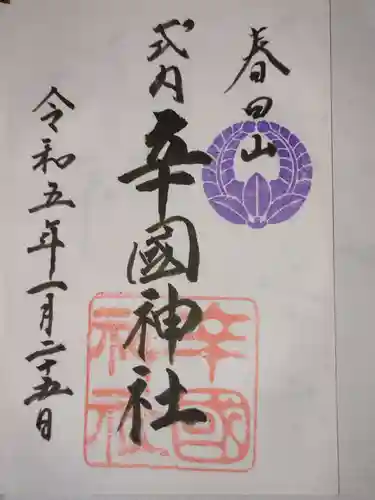 春日山
式内
辛國神社
令和五年一月二十五日
辛國
神社